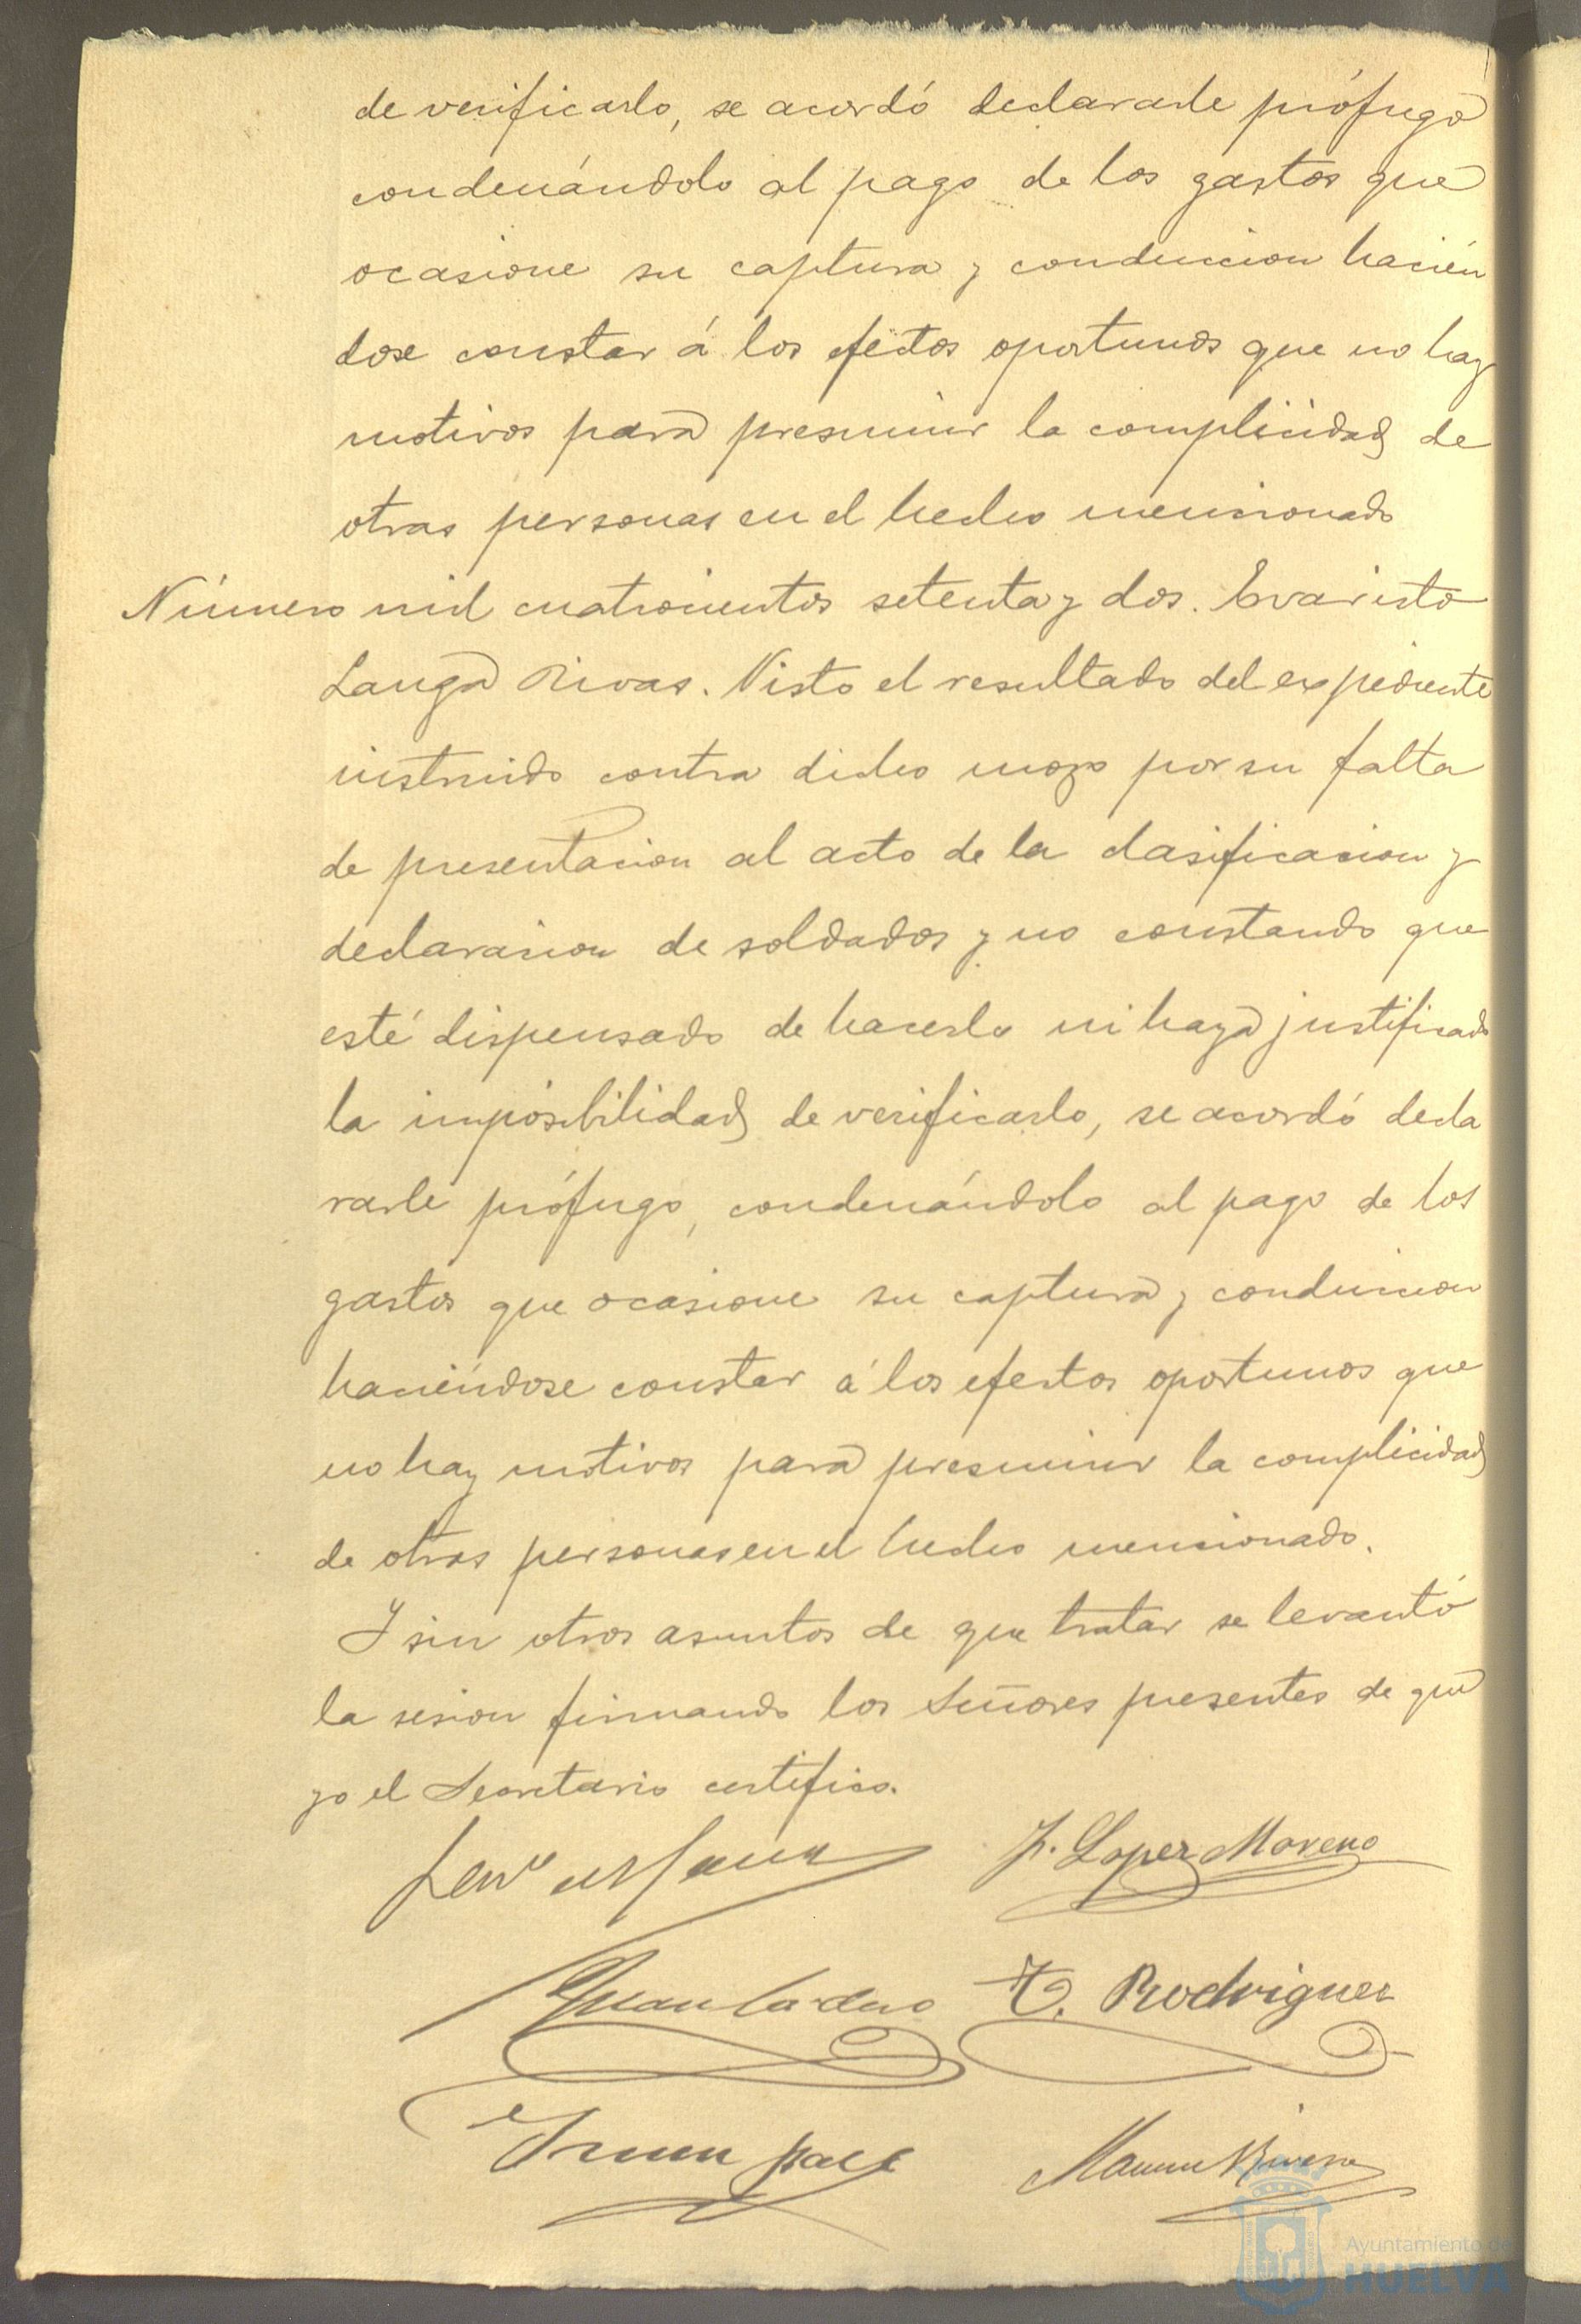 de verificarlo, se acordó declararle prófugo
condenándolo al pago de los gastos que
ocasione su captura y conduccion hacién
dose constar á los efectos oportunos que no hay
motivos para presumir la complicidad de
otras personas en el hecho mencionado
Número mil cuatrocientos setenta y dos. Evaristo
Langa Rivas. Visto el resultado del expediente
instruido contra dicho mozo por su falta
de presentacion al acto de la clasificacion y
declaracion de soldados y no constando que
esté dispensado de hacerlo ni haya justificado
la imposibilidad de verificarlo, se acordó decla
rarle prófugo, condenándolo al pago de los
gastos que ocasione su captura y conduccion
haciéndose constar á los efectos oportunos que
no hay motivos para presumir la complicidad
de otras personas en el hecho mencionado.
Y sin otros asuntos de que tratar se levantó
la sesion firmando los Señores presentes de que
yo el Secretario certifico.
Lopez Moreno
Juan Cadeno T. Rodriguez
Manuel Rivera
Ayuntamiento de
HUELVA